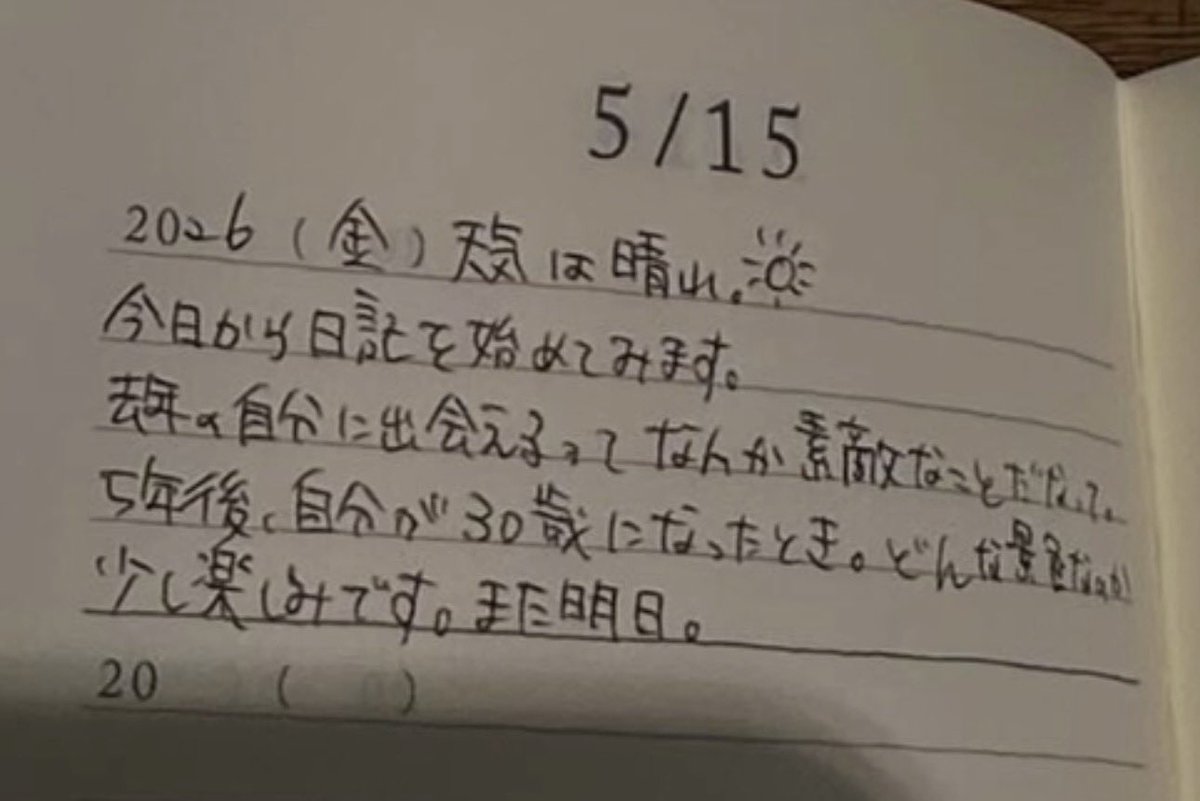 5/15
2026(金)天気は晴れ。
今日から日記を始めてみます。
去年の自分に出会えるってなんか素敵なことだなって。
5年後、自分が30歳になったとき。どんな景色なのか
少し楽しみです。また明日。
20 ( )